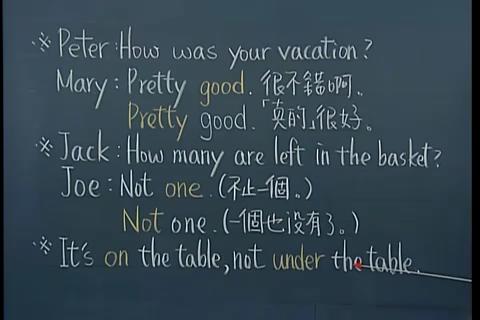 ※ Peter: How was your vacation?
Mary: Pretty good. 很不錯啊。
Pretty good.「真的」很好。
※ Jack: How many are left in the basket?
Joe: Not one. (不止一個。)
Not one. (一個也沒有了。)
※ It's on the table, not under the table.